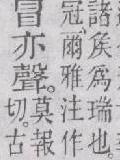 諸矦爲瑞也。
冠、爾雅注作
冒亦聲。
莫報
切。古